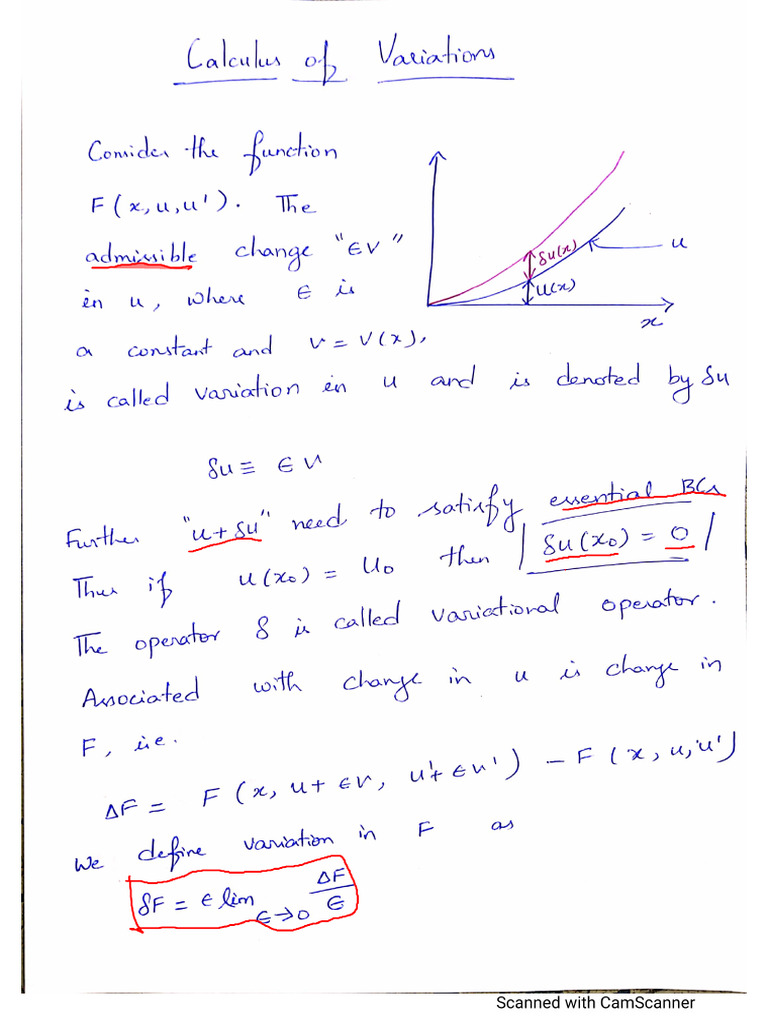 Calculus of Variations
Consider the function
F(x, u, u'). The
admissible change "ϵv"
in u, where ϵ is
a constant and v = v(x),
δu(x)
u
u(x)
x
is called variation in u and is denoted by δu
δu ≡ ϵv
Further "u+δu" need to satisfy essential BCs
Thus if u(x₀) = u₀ then | δu(x₀) = 0 |
The operator δ is called variational operator.
Associated with change in u is change in
F, i.e.
ΔF = F(x, u+ϵv, u'+ϵv') − F(x, u, u')
We define variation in F as
δF = ϵ lim ϵ→0 ΔF/ϵ
Scanned with CamScanner